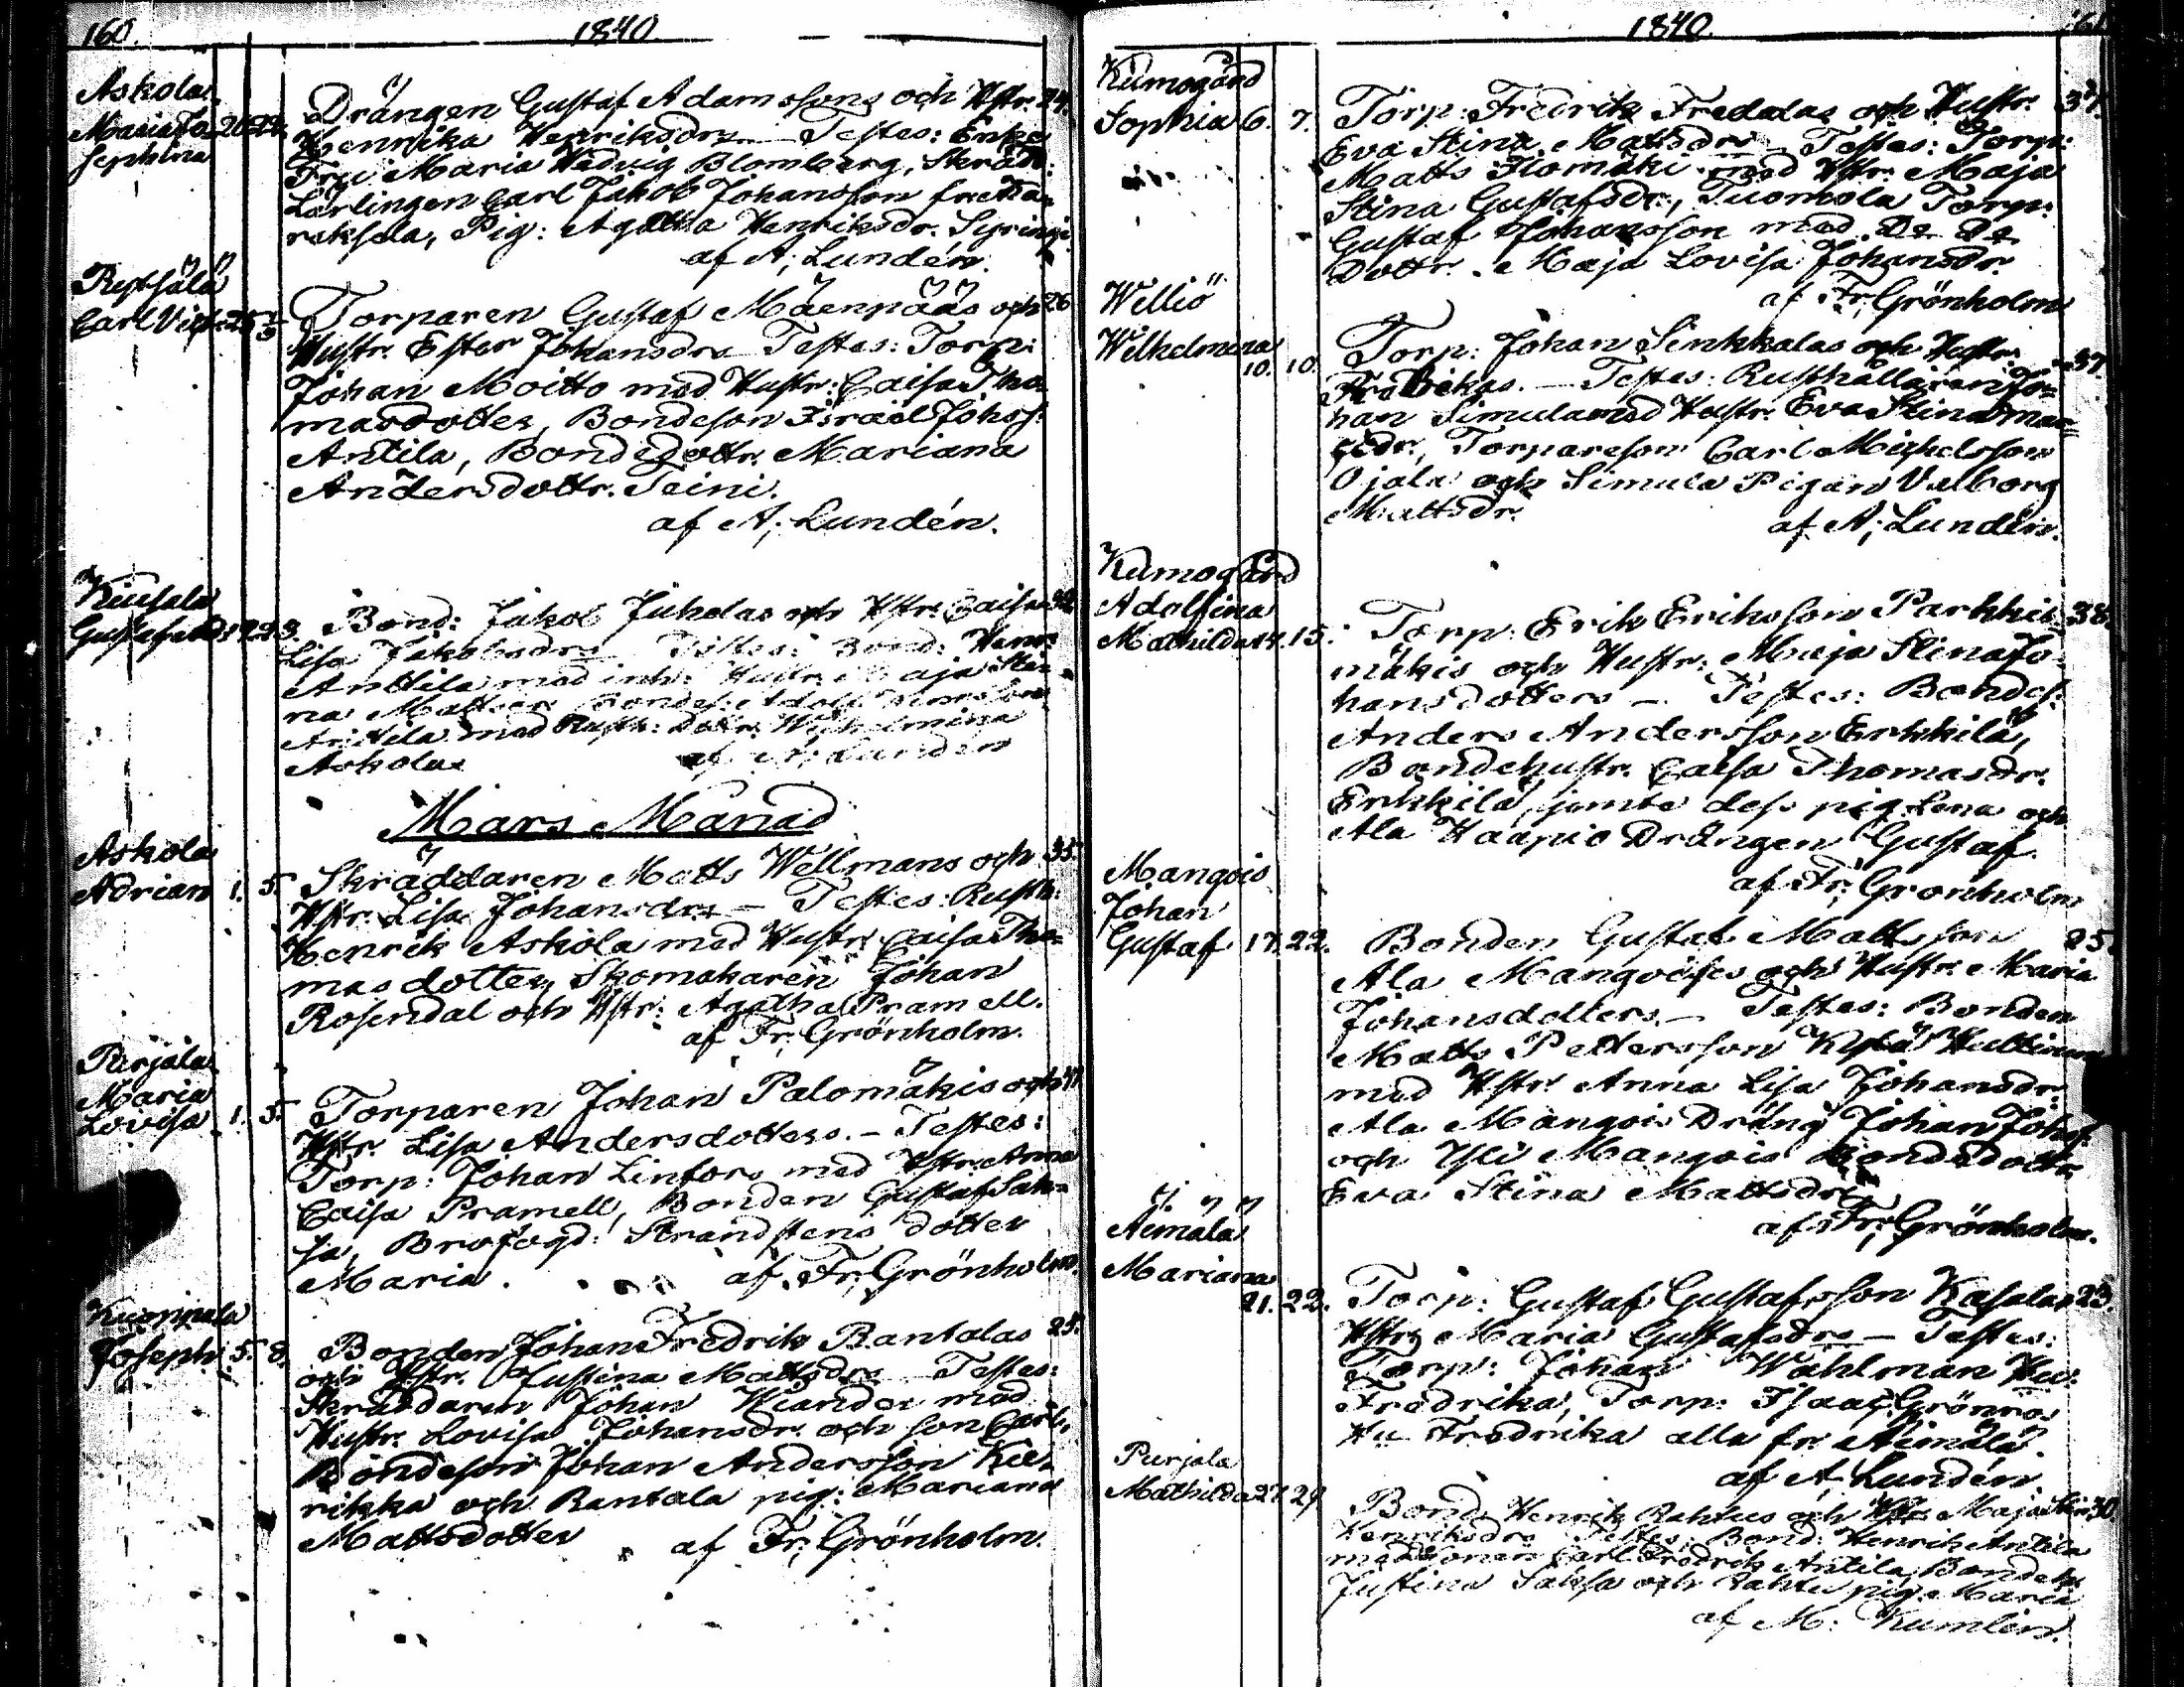 160. 1840.
Askola
Maria Jo- 20. 22. Drängen Gustaf Adamssons och Hstr. 24.
sephina Henrika Henriksdrs — Testes: Enke
Fru Maria Hedvig Blomberg, Skräd:
Lärlingen Carl Jakob Johansson fr.
Pig: Agatha Henriksdr.
af A; Lundén.
Torparen Gustaf Mäenpääs och 26
Hustr. Ester Johansdrs — Testes: Torp:
Johan Moitto med Hustr: Caisa Tho-
masdotter, Bondeson Israel Johss:
Antila, Bondedottr. Mariana
Andersdottr. Teini.
af A; Lundén.
Gustaf
Bond: Jakob Juholas och Hstr. Caisa
Lisa Jakobsdrs — Testes: Bond: Henr:
Anttila med
Anttila med Rusth: Dottr. Wilhelmina
Askola af A; Lundén
Mars Månad
Askola
Adrian 1. 5. Skräddaren Matts Wellmans och 35.
Hstr. Lisa Johansdrs — Testes: Rusth:
Henrik Askola med Hustr. Caisa Tho-
masdotter, Skomakaren Johan
Rosendal och Hstr: Agatha Pramell.
af Fr; Grönholm.
Purjala
Maria
Lovisa 1. 5. Torparen Johan Palomäkis och
Hstr. Lisa Andersdotters. — Testes:
Torp: Johan Linfors med Hstr. Anna
Caisa Pramell, Bonden Gustaf Sak-
sa, Brofogd: Strandstens dotter
Maria. af Fr; Grönholm.
Kuoppala
Joseph 5. 8. Bonden Johan Fredrik Rantalas 25.
och Hstr. Justina Mattsdrs — Testes:
Skräddaren Johan Kiander med
Hustr. Lovisa Johansdr. och son Carl,
Bondeson Johan Andersson Kie-
rikka och Rantala pig: Mariana
Mattsdotter af Fr; Grönholm.
1840. 161.
Kumogård
Sophia 6. 7. Torp: Fredrik Freddas och Hustr. 37.
Eva Stina Mattsdrs — Testes: Torp:
Matts Isomäki med Hstr. Maja
Stina Gustafsdr., Tuomola Torp:
Gustaf Johansson med
Dottr. Maja Lovisa Johansdr.
af Fr; Grönholm
Welliö
Wilhelmina
10. 10. Torp: Johan Sinkkalas och Hustr. 37.
Fredrikas. — Testes: Rusthållaren Jo-
han Simula med Hustr. Eva Stina
Torpareson Carl Michelsson
Ojala och Simula Pigan Valborg
Mattsdr. af A; Lundén.
Kumogård
Adolfina
Mathilda 14. 15. Torp. Erik Eriksson Parkki- 38.
mäkis och Hustr: Maja Stina Jo-
hansdotters — Testes: Bondes:
Anders Andersson Erkkilä,
Bondehustr. Caisa Thomasdr.
Erkkilä, jemte dess pig. Lena och
Ala Haapio Drängen Gustaf.
af Fr; Grönholm
Mangois
Johan
Gustaf 17. 22. Bonden Gustaf Mattsson 25.
Ala Mangois och Hustr. Maria
Johansdotters. — Testes: Bonden
Matts Pettersson Kylä
med Hstr. Anna Lisa Johansdr.
Ala Mangois Dräng Johan Johss:
och Yli Mangois Bondedottr.
Eva Stina Mattsdr.
af Fr; Grönholm.
Aimälä
Mariana
21. 22. Torp: Gustaf Gustafsson Kasalas 23.
Hstrs Maria Gustafsdrs — Testes:
Torp: Johan Wahlman Hu:
Fredrika, Torp: Isaac Grönroos
Hu Fredrika alla fr. Aimälä.
af A; Lundén
Purjala
Mathilda 27. 29. Bond: Henrik Rahtus och Hstr. Maja Stin. 30.
Henriksdrs Testes: Bond: Henrik Antila
med sonen Carl Fredrik Antila,
Justina Saksa och Rahtu pig: Maria
af M: Kumlin.